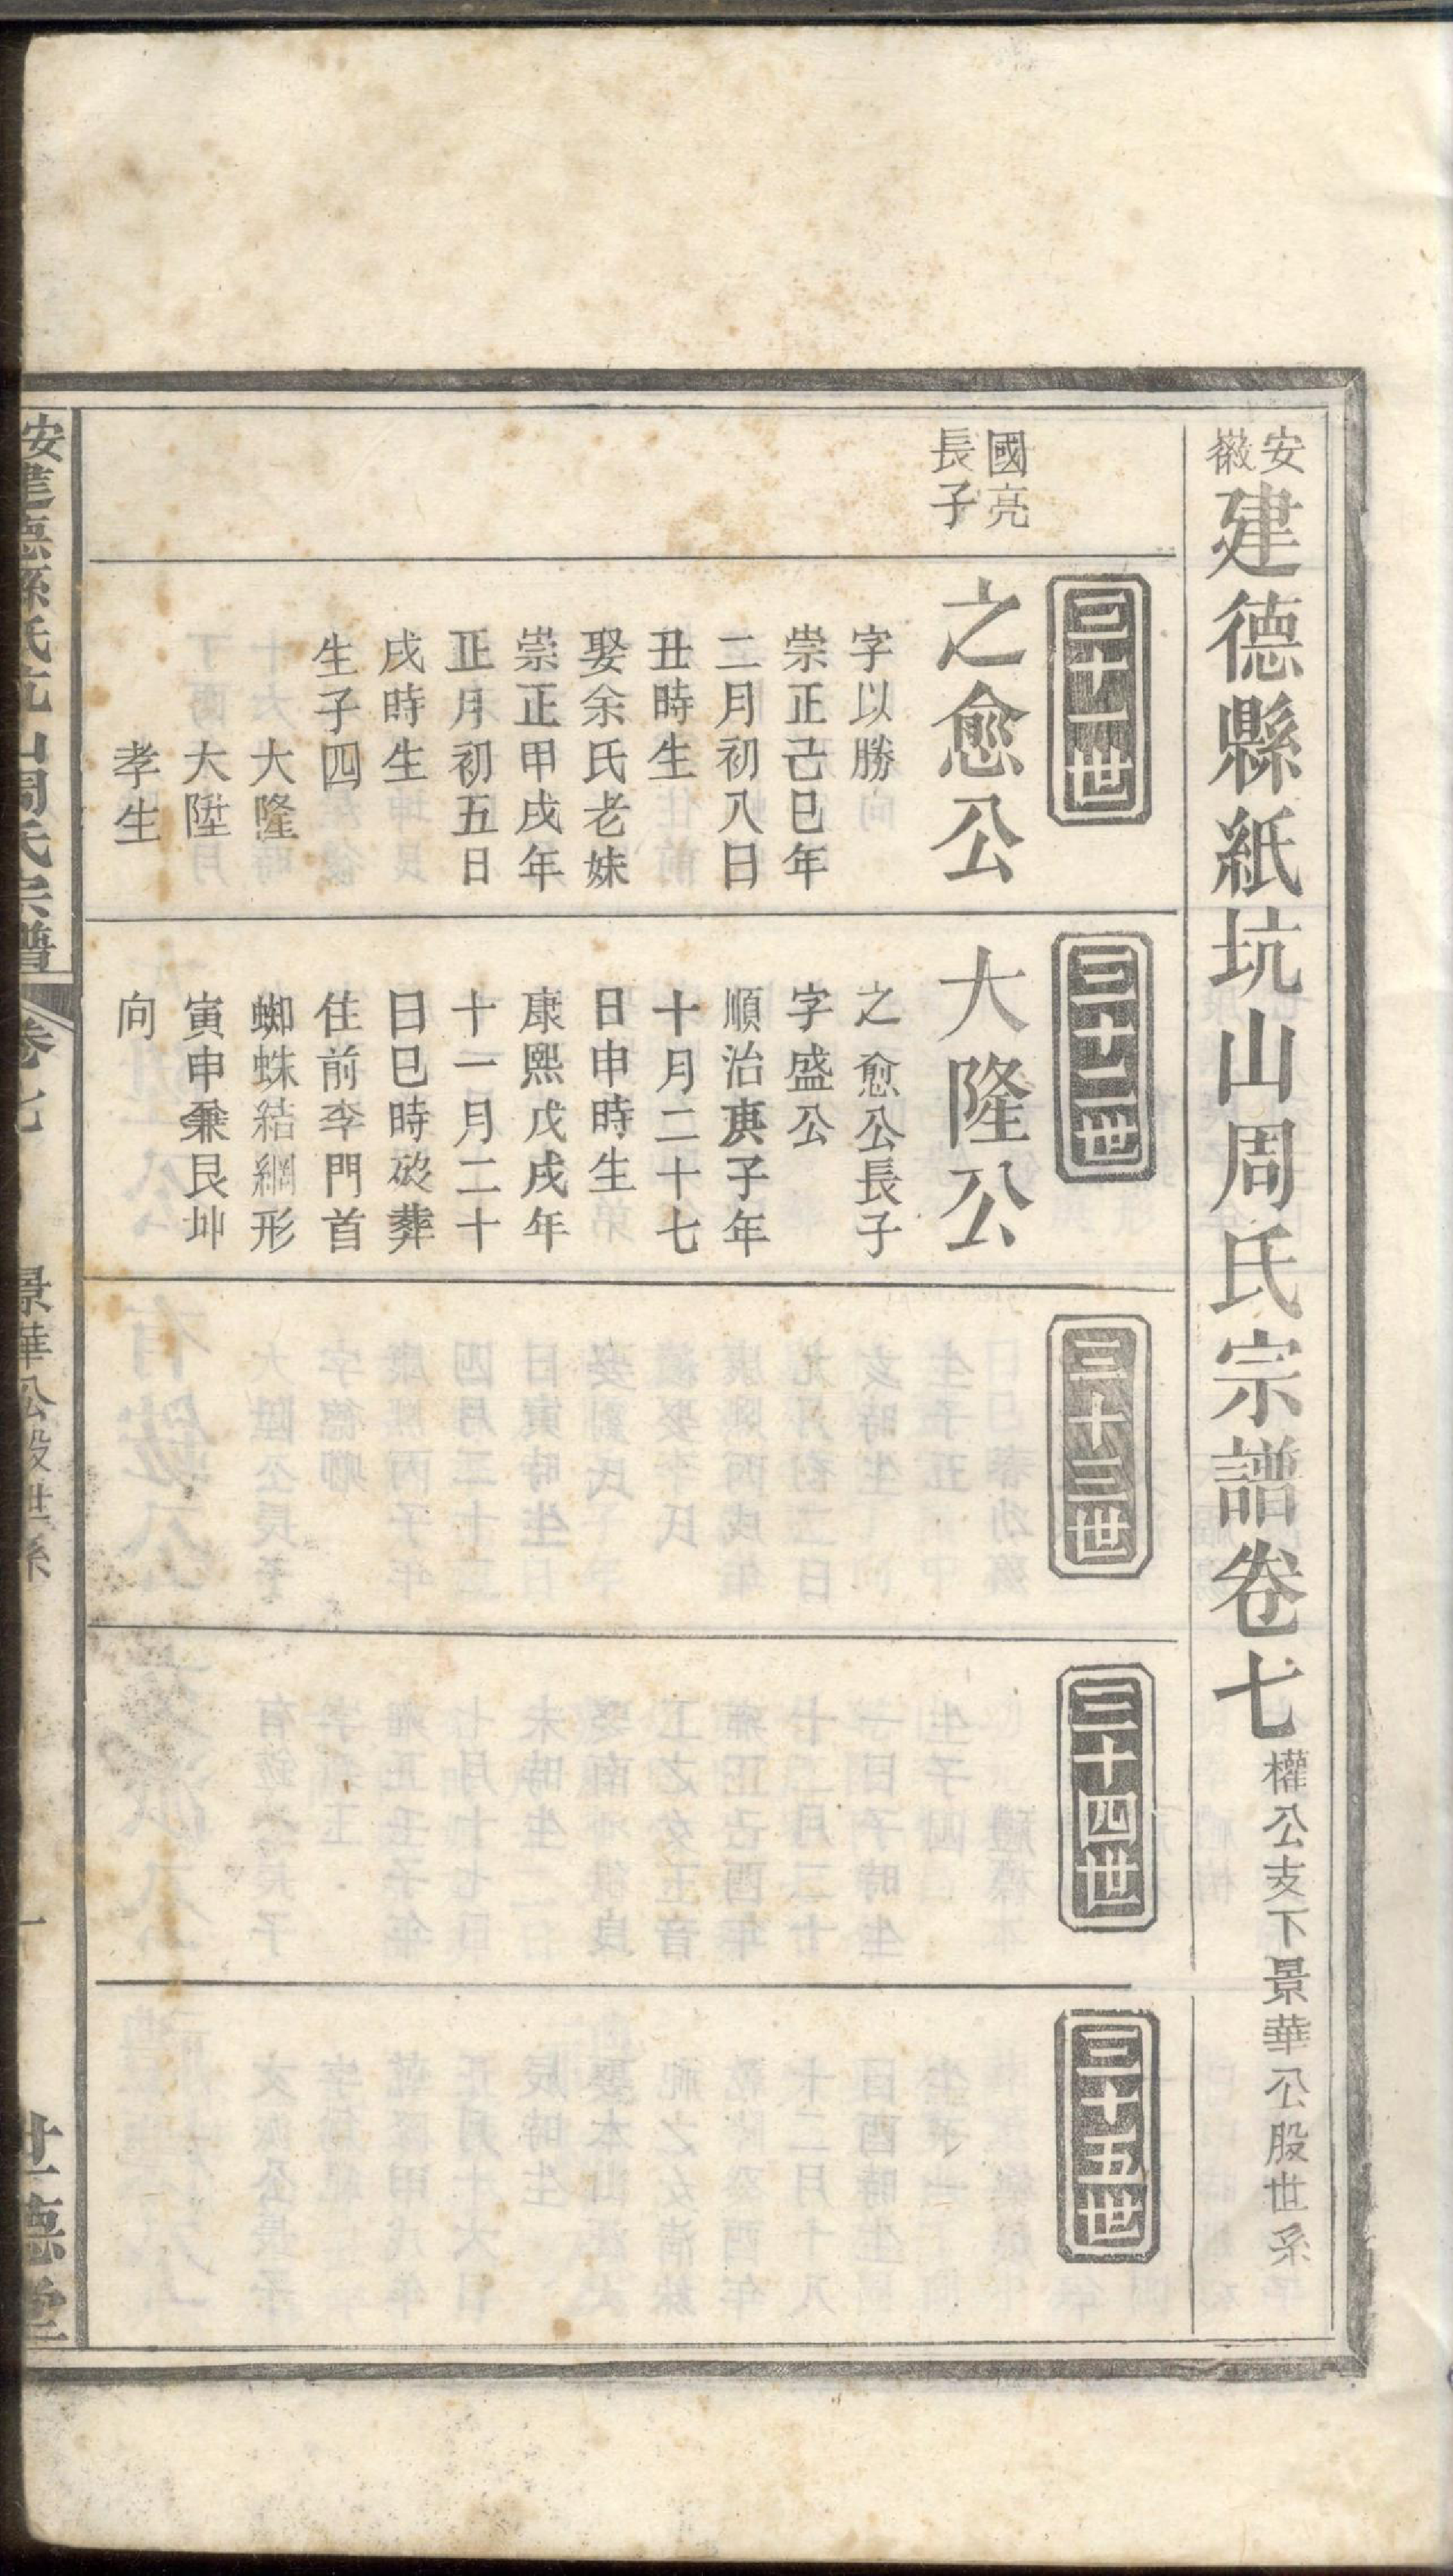 安徽建德縣紙坑山周氏宗譜卷七 權公支下景華公股世系
三十一世
國亮長子
之愈公
字以勝
崇正己巳年
二月初八日
丑時生
娶余氏老妹
崇正甲戌年
正月初五日
戌時生
生子四
大隆
大陞
孝生
三十二世
大隆公
之愈公長子
字盛公
順治庚子年
十月二十七
日申時生
康熙戊戌年
十一月二十
日巳時歿葬
住前李門首
蜘蛛結網形
寅申兼艮坤
向
三十三世
三十四世
三十五世
建德縣氏坑山周氏宗譜
卷七
景華公股世系
一
世德堂